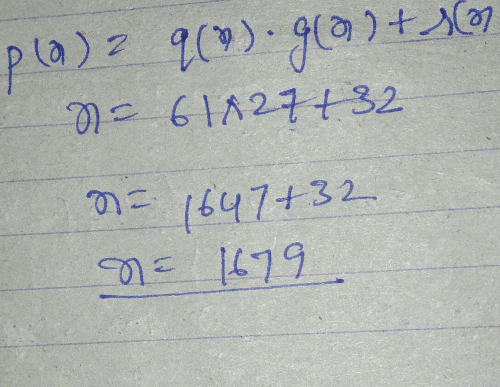 p(x) = q(x) · g(x) + r(x
x = 61×27+32
x = 1647+32
x = 1679